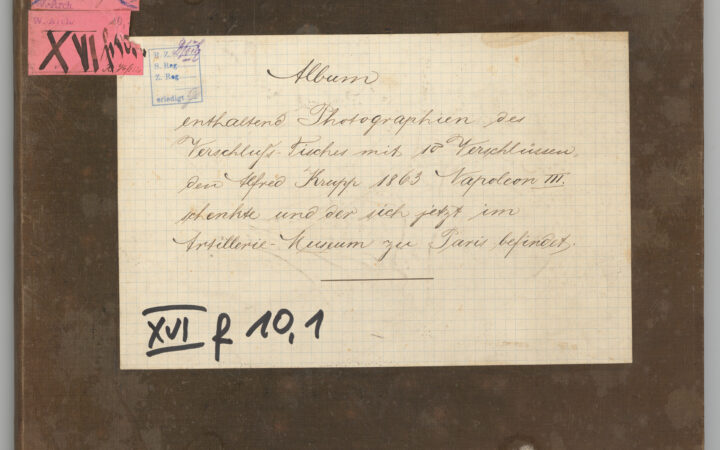 XVI
R. Z.
S. Reg.
Z. Reg.
erledigt
Album
enthaltend Photographien des
Verschluß-Tisches mit 10 Verschlüssen,
den Alfred Krupp 1863 Napoleon III.
schenkte und der sich jetzt im
Artillerie-Museum zu Paris befindet.
XVI f 10,1